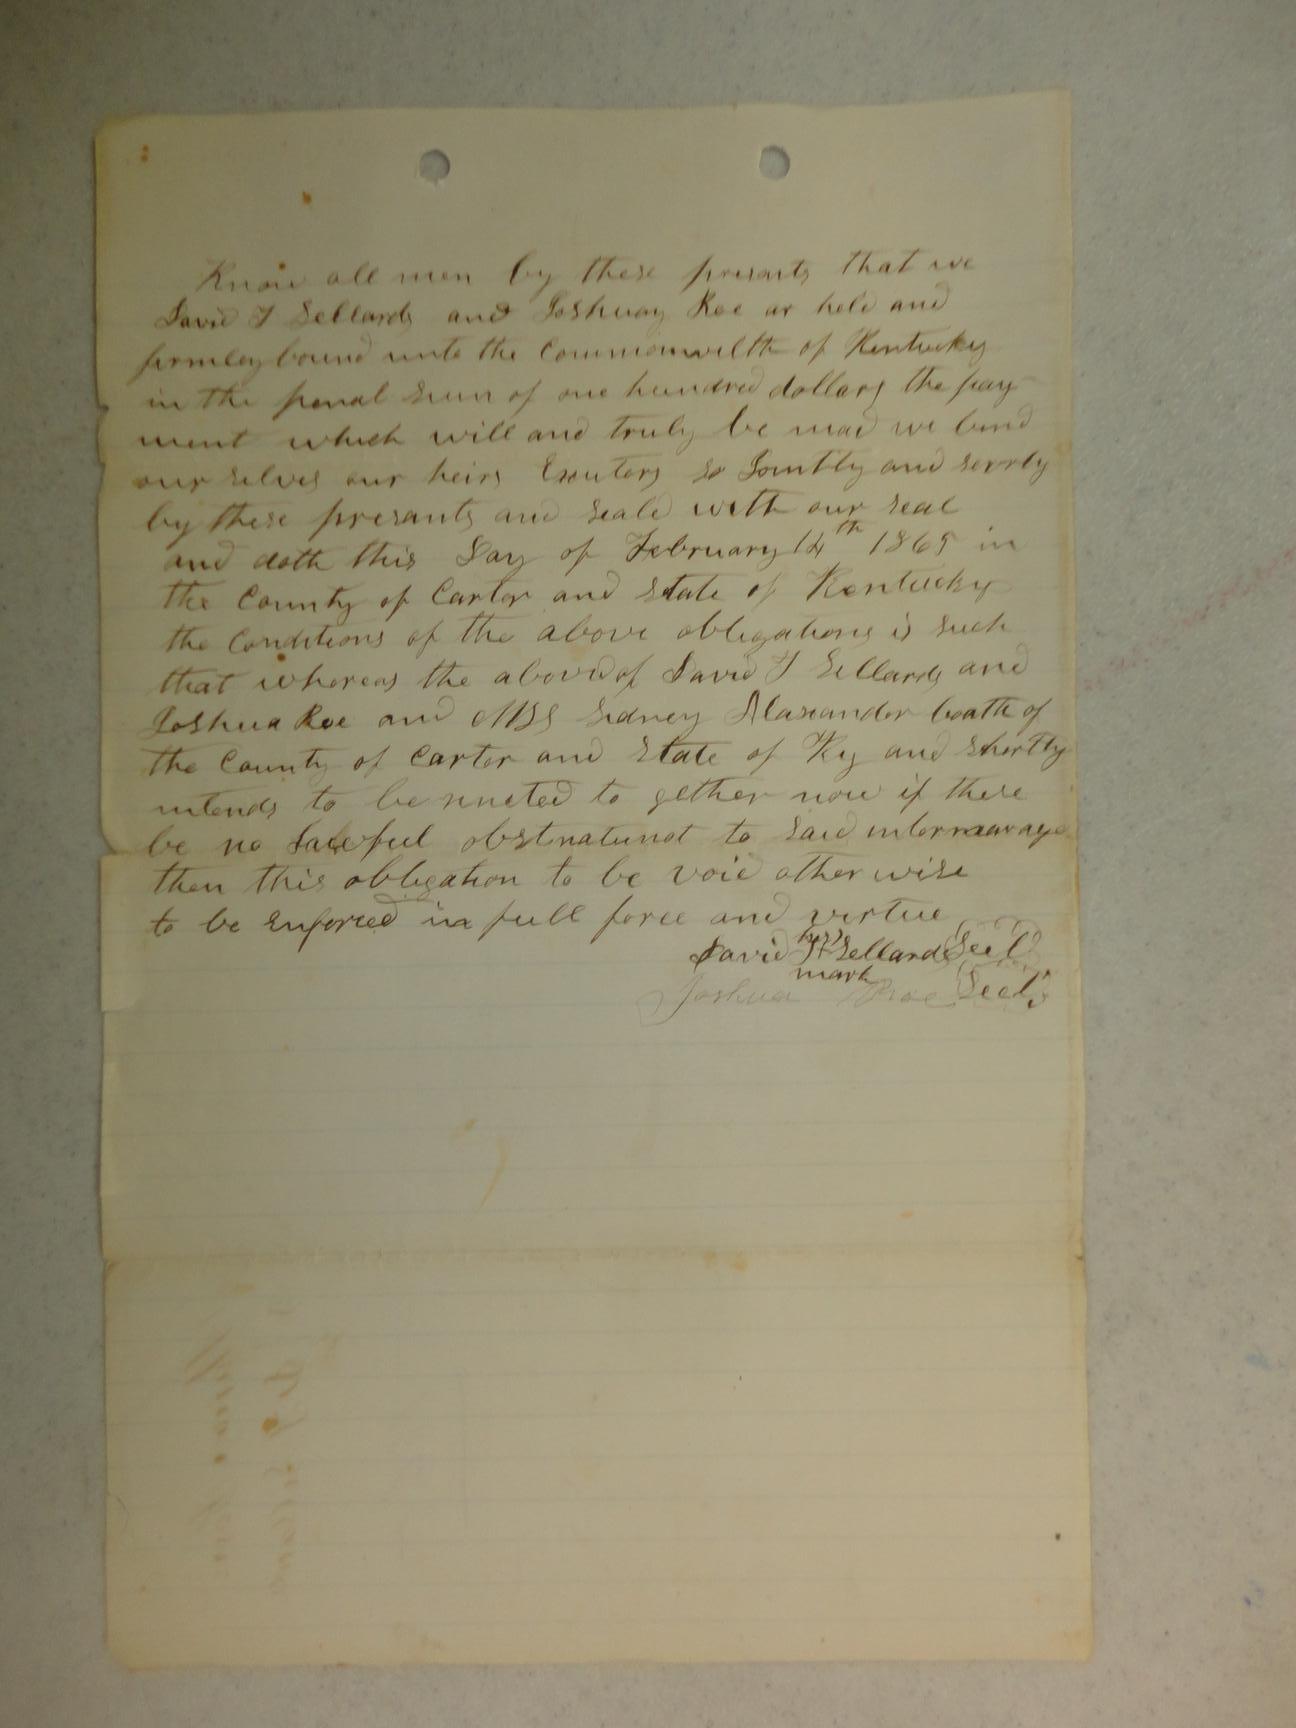 Know all men by these presants that we
David T Sellards and Joshuay Roe ar held and
firmley bound unto the Commonwelth of Kentucky
in the penal sum of one hundred dollars the pay
ment which will and truly be mad we bind
our selves our heirs Exutors so Jointly and serrly
by these presants and seald with our seal
and doth this Day of February 14th 1865 in
the County of Carter and State of Kentucky
the Conditions of the above obligations is such
that whereas the abovd of David T Sellards and
Joshua Roe and Miss Sidney Alaxander boath of
the County of Carter and State of Ky and shortly
intends to be uneted to gether now if there
be no Lawfull to said intermarage
then this obligation to be void other wise
to be enforced in full force and virtue
his
David T Sellards Seel
mark
Joshua Roe Seel